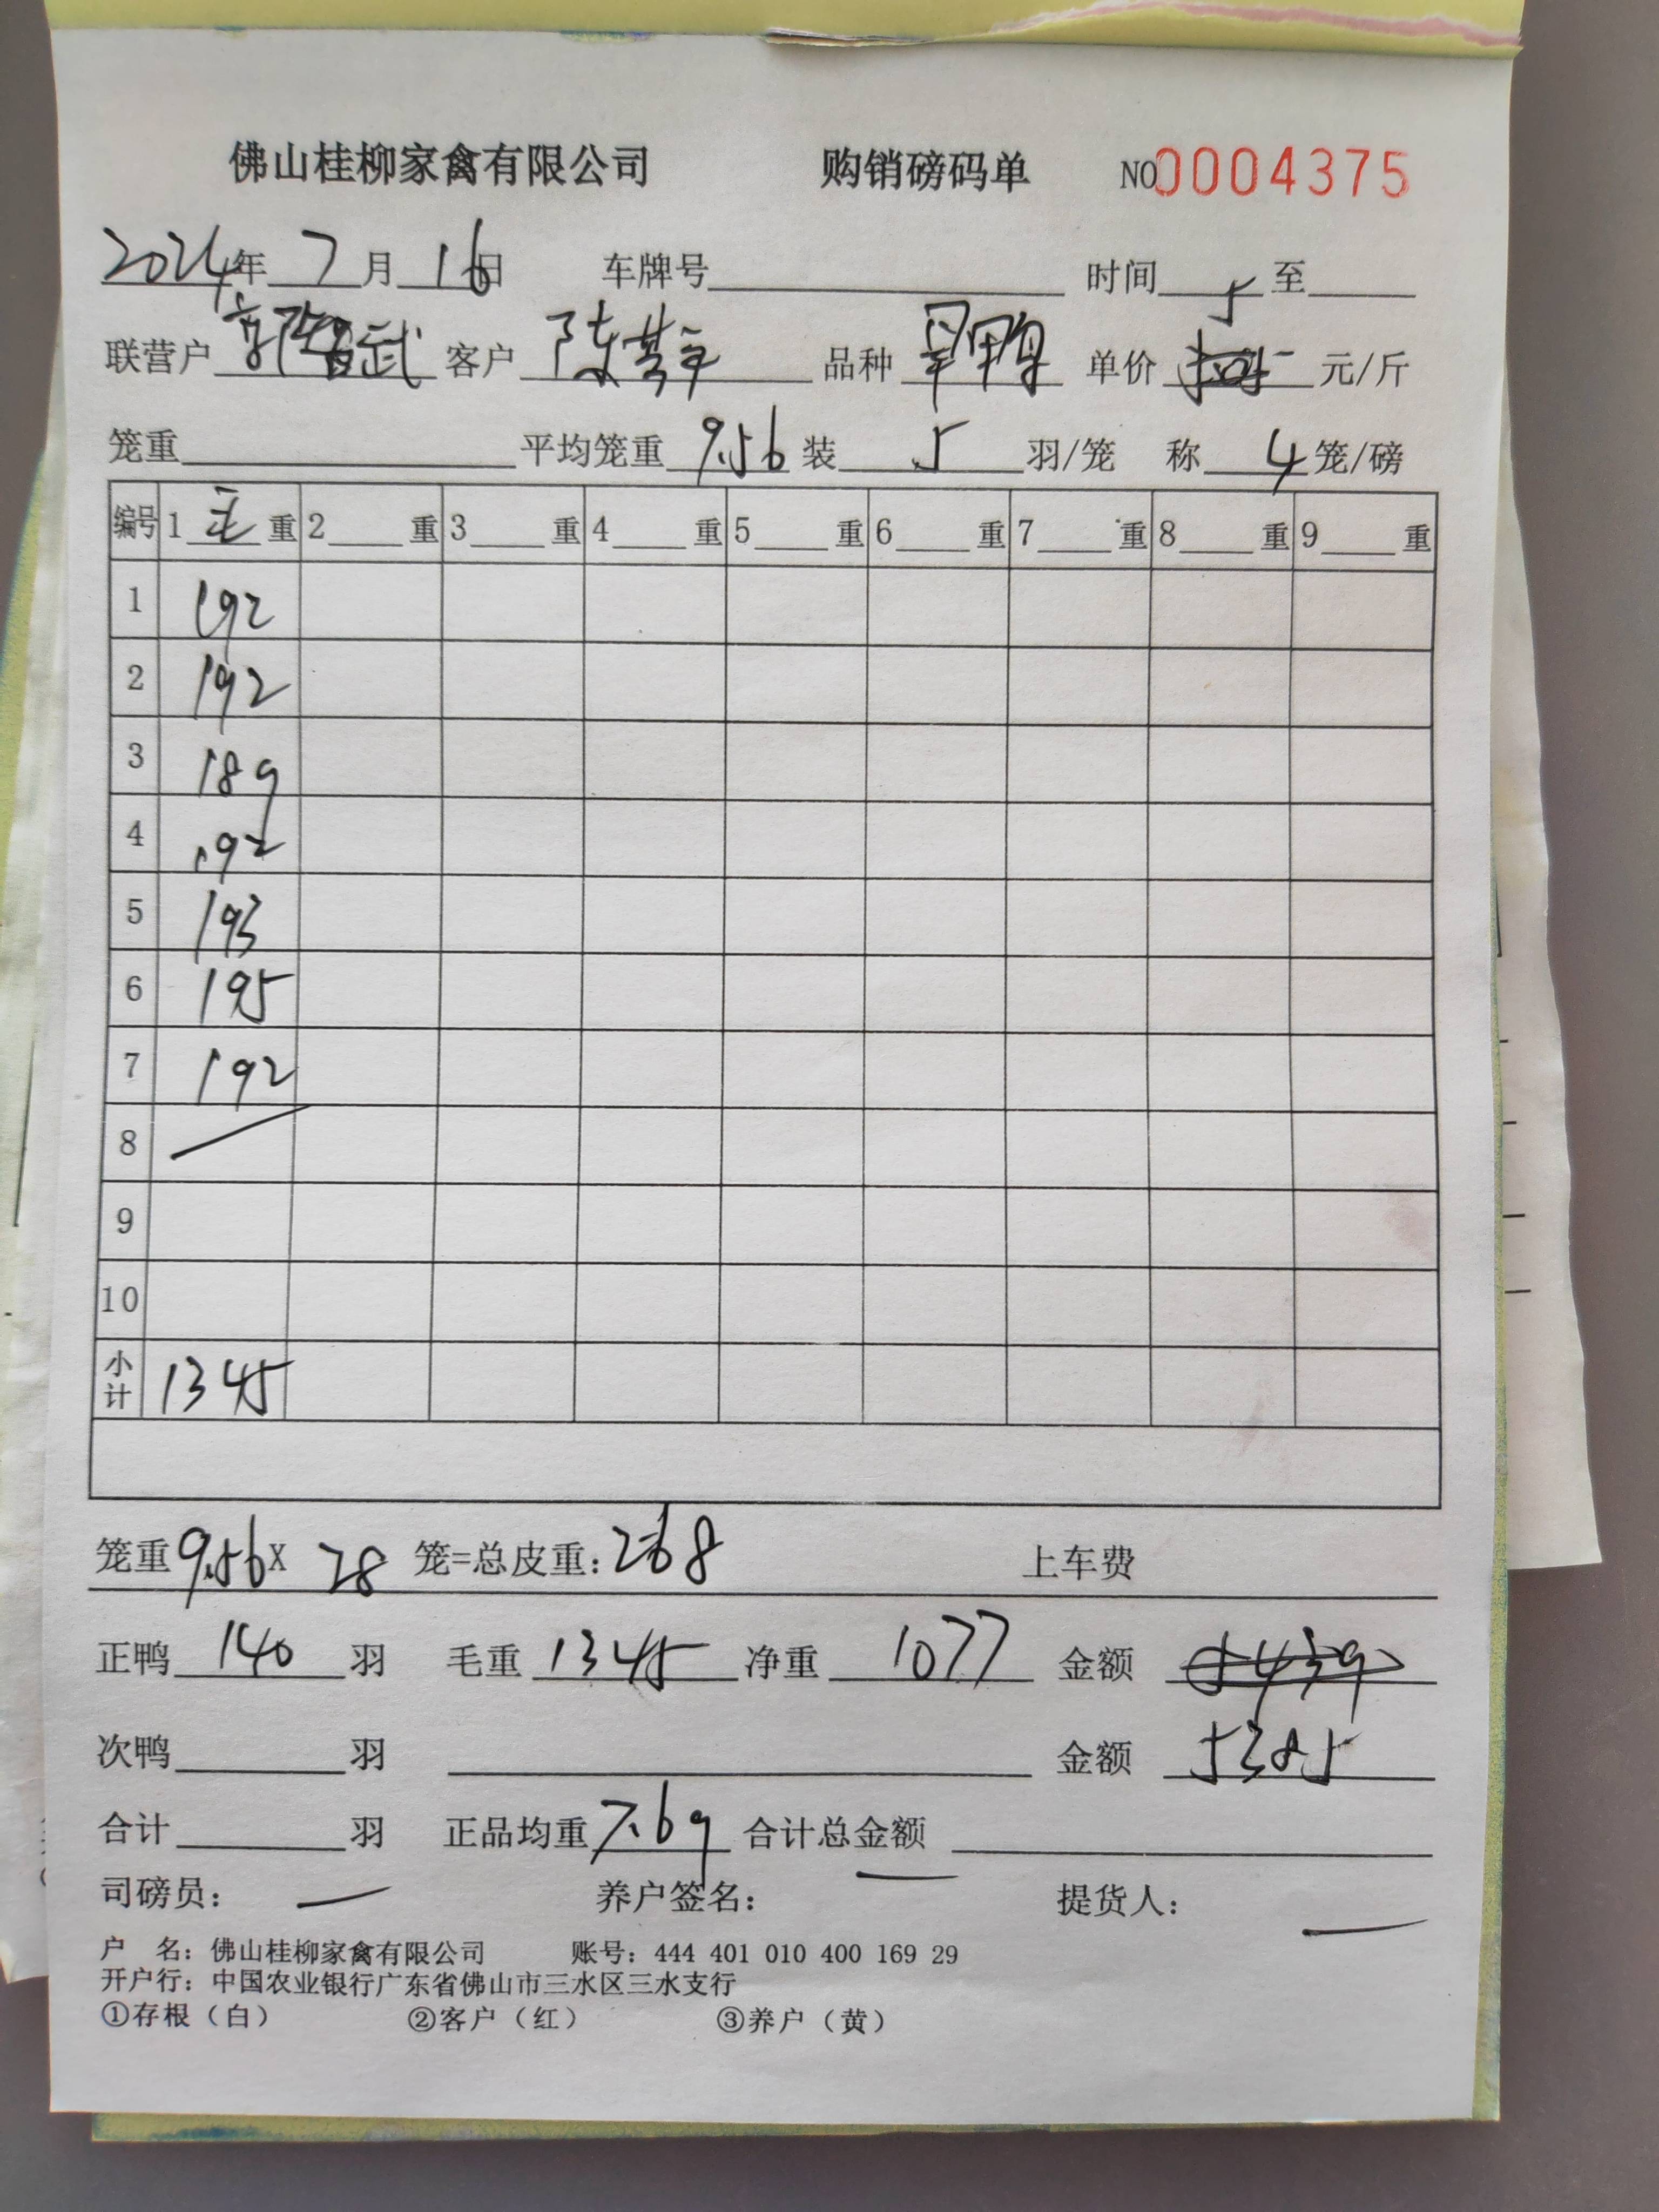 佛山桂柳家禽有限公司 购销磅码单 NO0004375
2024年 7月 16日 车牌号 时间 5 至
联营户 郭智武 客户 陈 品种 旱鸭 单价 元/斤
笼重 平均笼重 9.56 装 5 羽/笼 称 4 笼/磅
编号 1 毛 重 2 重 3 重 4 重 5 重 6 重 7 重 8 重 9 重
1 192
2 192
3 189
4 192
5 193
6 195
7 192
8
9
10
小计 1345
笼重9.56X 28 笼=总皮重:268 上车费
正鸭 140 羽 毛重 1345 净重 1077 金额 5439
次鸭 羽 金额 5385
合计 羽 正品均重 7.69 合计总金额
司磅员: 养户签名: 提货人:
户 名: 佛山桂柳家禽有限公司 账号: 444 401 010 400 169 29
开户行: 中国农业银行广东省佛山市三水区三水支行
①存根（白） ②客户（红） ③养户（黄）